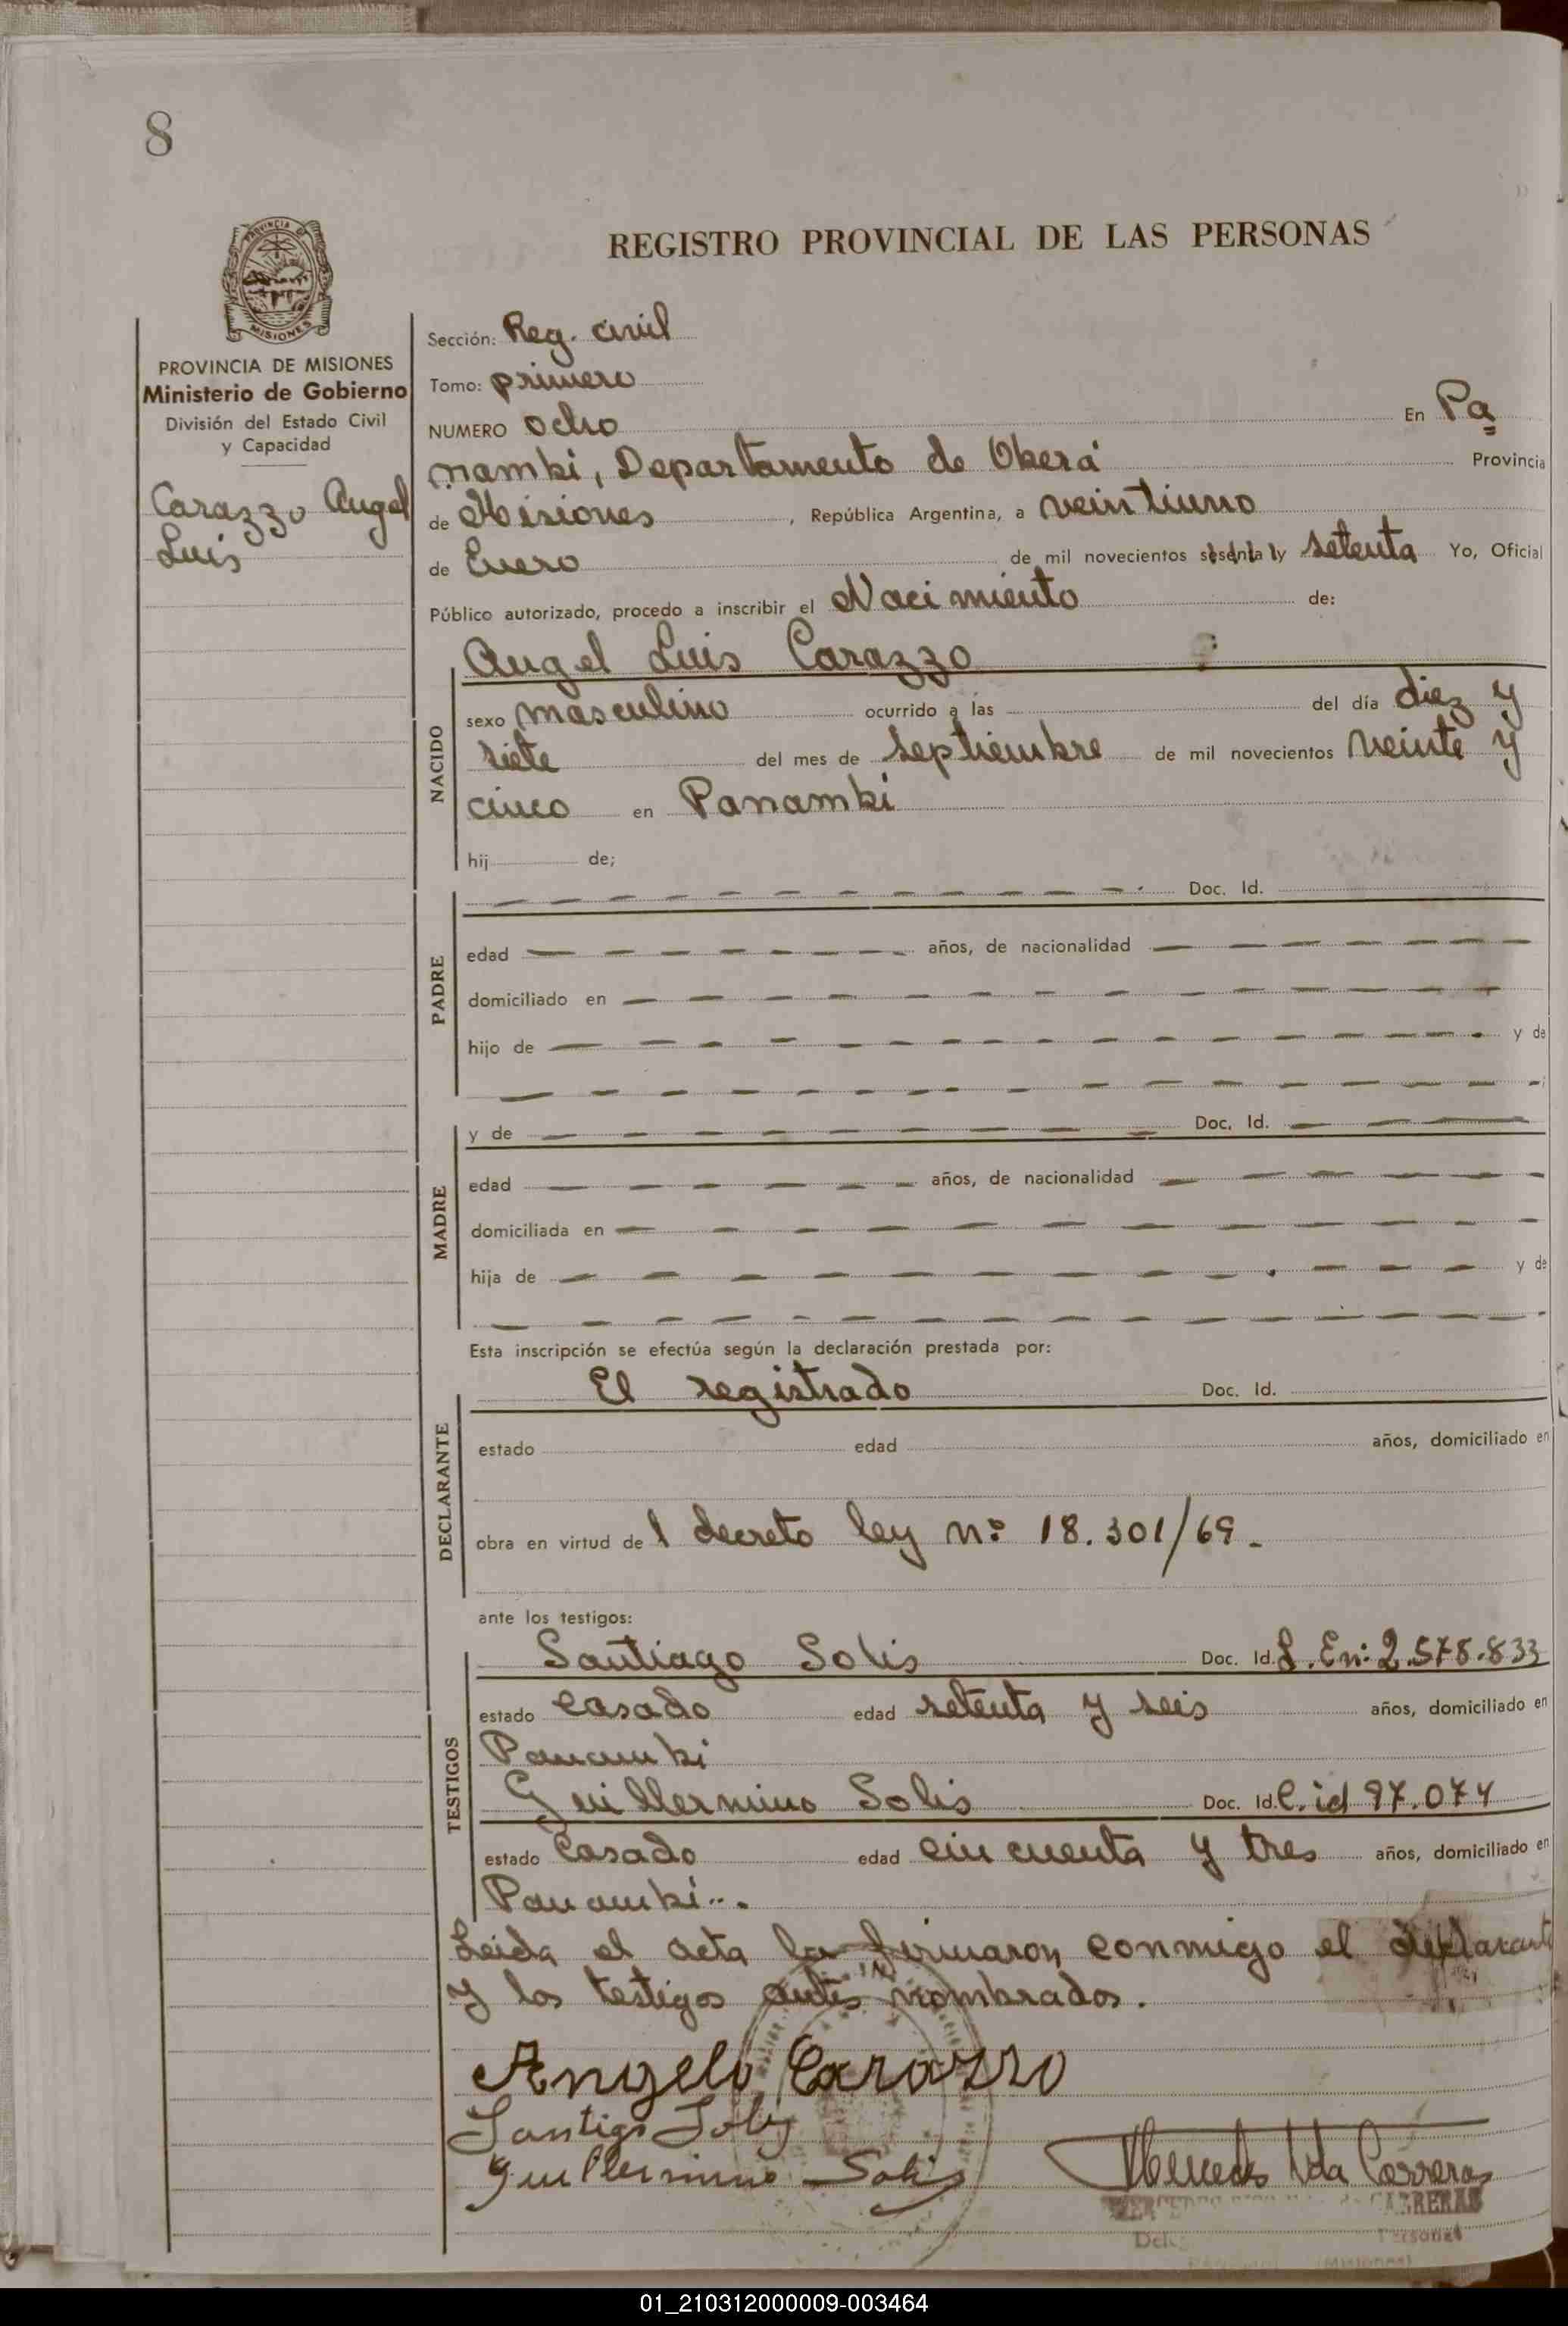 8
REGISTRO PROVINCIAL DE LAS PERSONAS
PROVINCIA DE
MISIONES
PROVINCIA DE MISIONES
Ministerio de Gobierno
División del Estado Civil
y Capacidad
Carazzo Angel
Luis
Sección: Reg. civil
Tomo: primero
NUMERO ocho En Pa
nambi, Departamento de Oberá Provincia
de Misiones, República Argentina, a veintiuno
de Enero de mil novecientos sesenta y setenta Yo, Oficial
Público autorizado, procedo a inscribir el Nacimiento de:
Angel Luis Carazzo
NACIDO
sexo masculino ocurrido a las del día diez y
siete del mes de septiembre de mil novecientos veinte y
cinco en Panambi
hij de;
PADRE
Doc. Id.
edad años, de nacionalidad
domiciliado en
hijo de y de
MADRE
y de Doc. Id.
edad años, de nacionalidad
domiciliada en
hija de y de
Esta inscripción se efectúa según la declaración prestada por:
DECLARANTE
El registrado Doc. Id.
estado edad años, domiciliado en
obra en virtud del decreto ley nº 18.301/69.-
ante los testigos:
TESTIGOS
Santiago Solis Doc. Id. L. En: 2.578.833
estado casado edad setenta y seis años, domiciliado en
Panambi
Guillermino Solis Doc. Id. C. id 97.074
estado Casado edad cincuenta y tres años, domiciliado en
Panambi..-
Leida el acta la firmaron conmigo el declarante
y los testigos antes nombrados.
Angelo Carazzo
Santigo Solis
Guillermino Solis
Mercedes Nda Carreras
MERCEDES CARRERAS
Personas
(Misiones)
01_210312000009-003464